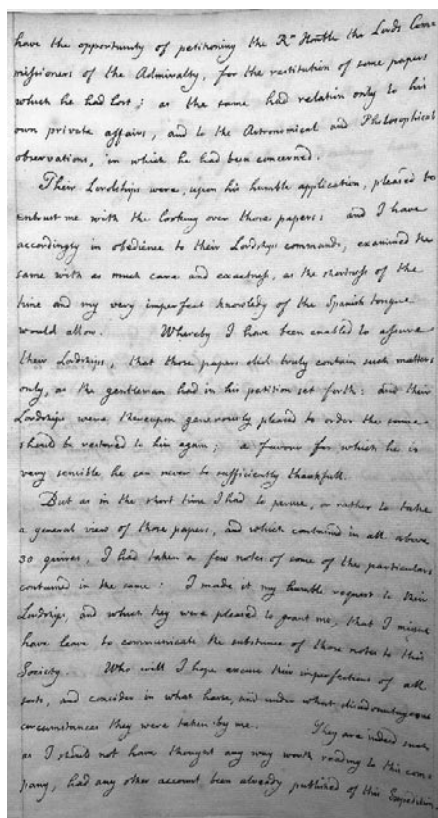 have the opportunity of petitioning the Rt. Honble the Lords Com-
missioners of the Admiralty, for the restitution of some papers
which he had lost; as the same had relation only to his
own private affairs, and to the Astronomical and Philosophical
observations, in which he had been concerned.
Their Lordships were, upon his humble application, pleased to
entrust me with the looking over those papers: and I have
accordingly in obedience to their Lordships commands, examined the
same with as much care and exactness, as the shortness of the
time and my very imperfect knowledg of the Spanish tongue
would allow. Whereby I have been enabled to assure
their Lordships, that those papers did truly contain such matters
only, as the gentleman had in his petition set forth: and their
Lordships were thereupon generously pleased to order the same
should be restored to him again; a favour for which he is
very sensible he can never be sufficiently thankfull.
But as in the short time I had to peruse, or rather to take
a general view of those papers, and which contained in all above
30 quires, I had taken a few notes of some of the particulars
contained in the same: I made it my humble request to their
Lordships, and which they were pleased to grant me, that I might
have leave to communicate the substance of those notes to this
Society. Who will I hope excuse their imperfections of all
sorts, and consider in what haste, and under what disadvantageous
circumstances they were taken by me. They are indeed such
as I should not have thought any way worth reading to this com-
pany, had any other account been already published of this Expedition,